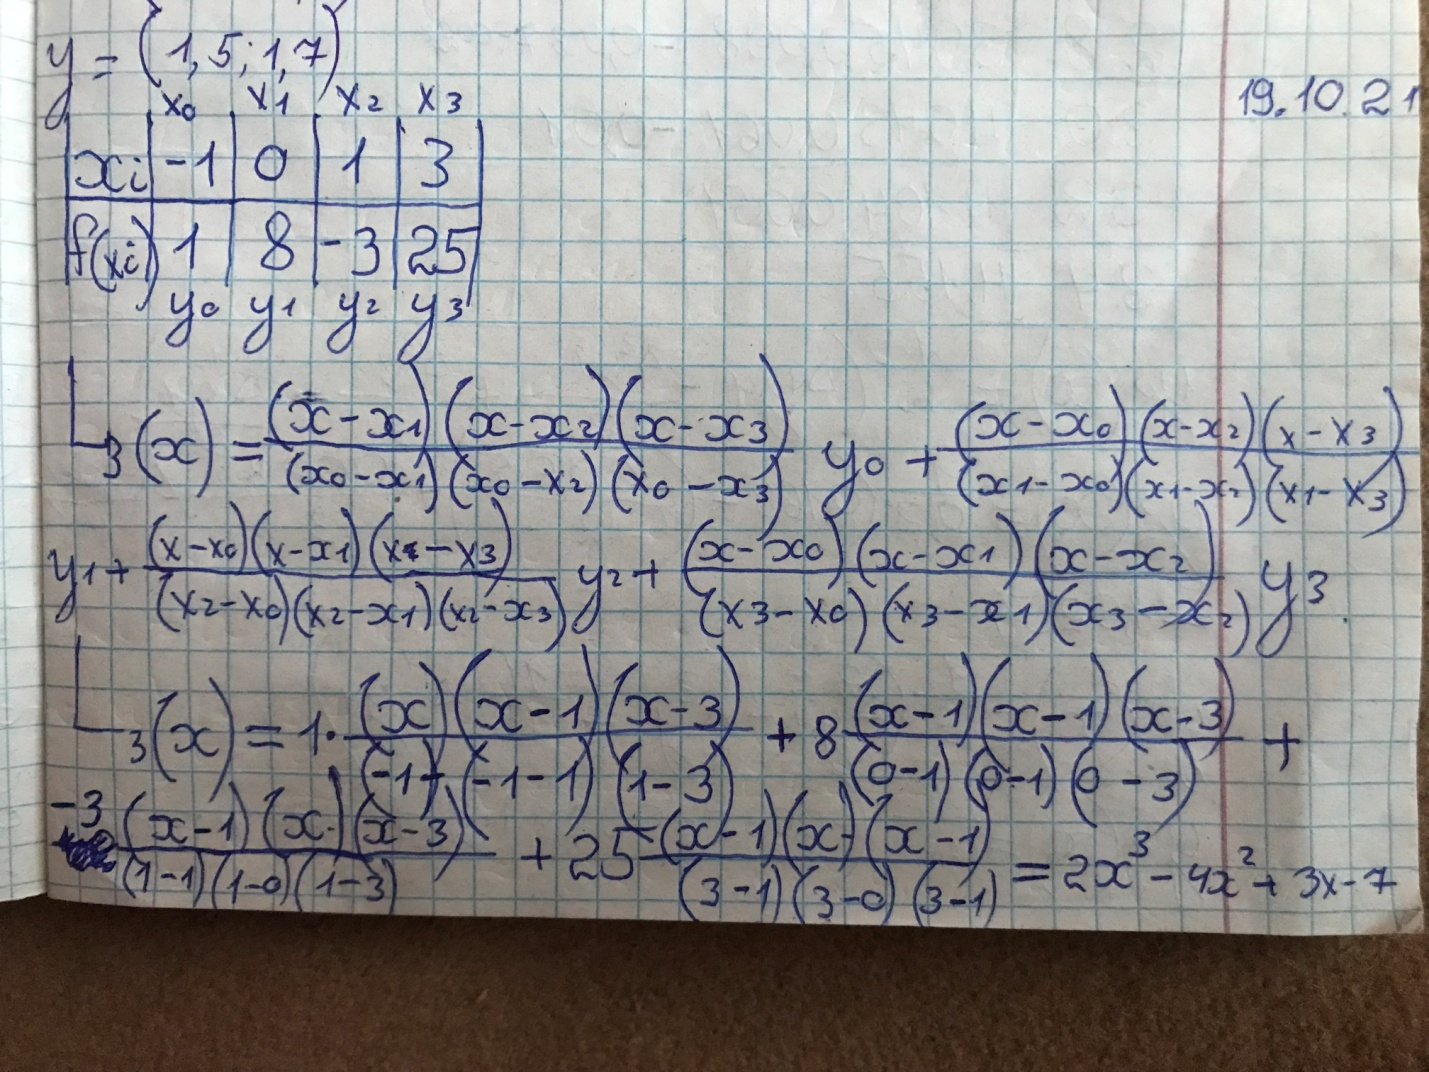 y = (1,5; 1,7)
19.10.21
x0 x1 x2 x3
xi -1 0 1 3
f(xi) 1 8 -3 25
y0 y1 y2 y3
L3(x) = (x-x1)(x-x2)(x-x3)/(x0-x1)(x0-x2)(x0-x3) y0 + (x-x0)(x-x2)(x-x3)/(x1-x0)(x1-x2)(x1-x3)
y1 + (x-x0)(x-x1)(x-x3)/(x2-x0)(x2-x1)(x2-x3) y2 + (x-x0)(x-x1)(x-x2)/(x3-x0)(x3-x1)(x3-x2) y3
L3(x) = 1· (x)(x-1)(x-3)/(-1)·(-1-1)(1-3) + 8 (x-1)(x-1)(x-3)/(0-1)(0-1)(0-3) +
-3 (x-1)(x·)(x-3)/(1-1)(1-0)(1-3) + 25 (x-1)(x·)(x-1)/(3-1)(3-0)(3-1) = 2x³ - 4x² + 3x - 7